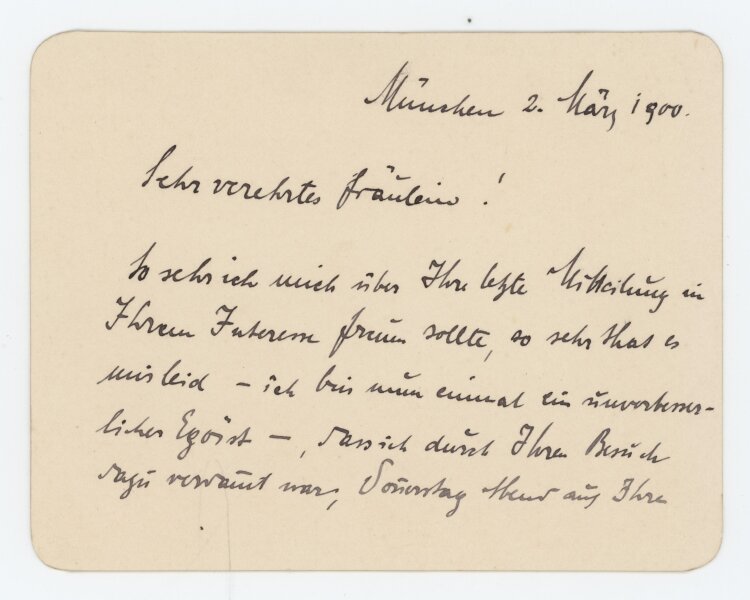 München 2. März 1900.
Sehr verehrtes Fräulein!
So sehr ich mich über Ihre letzte Mitteilung in
Ihrem Interesse freuen sollte, so sehr that es
mir leid – ich bin nun einmal ein unverbesser-
licher Egoist –, dass ich durch Ihren Besuch
dazu verdammt war, Donnerstag Abend auf Ihre